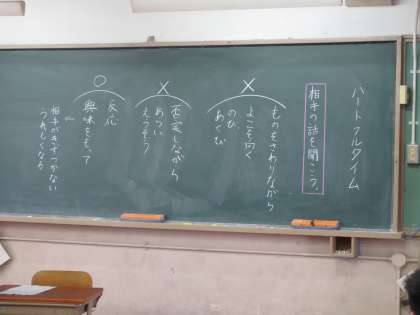 ハートフルタイム
相手の話を聞こう。
×
ものをさわりながら
よこを向く
のび、
あくび
×
否定しながら
あつい
えらそう
○
反応
興味をもって
相手がきずつかない
うれしくなる